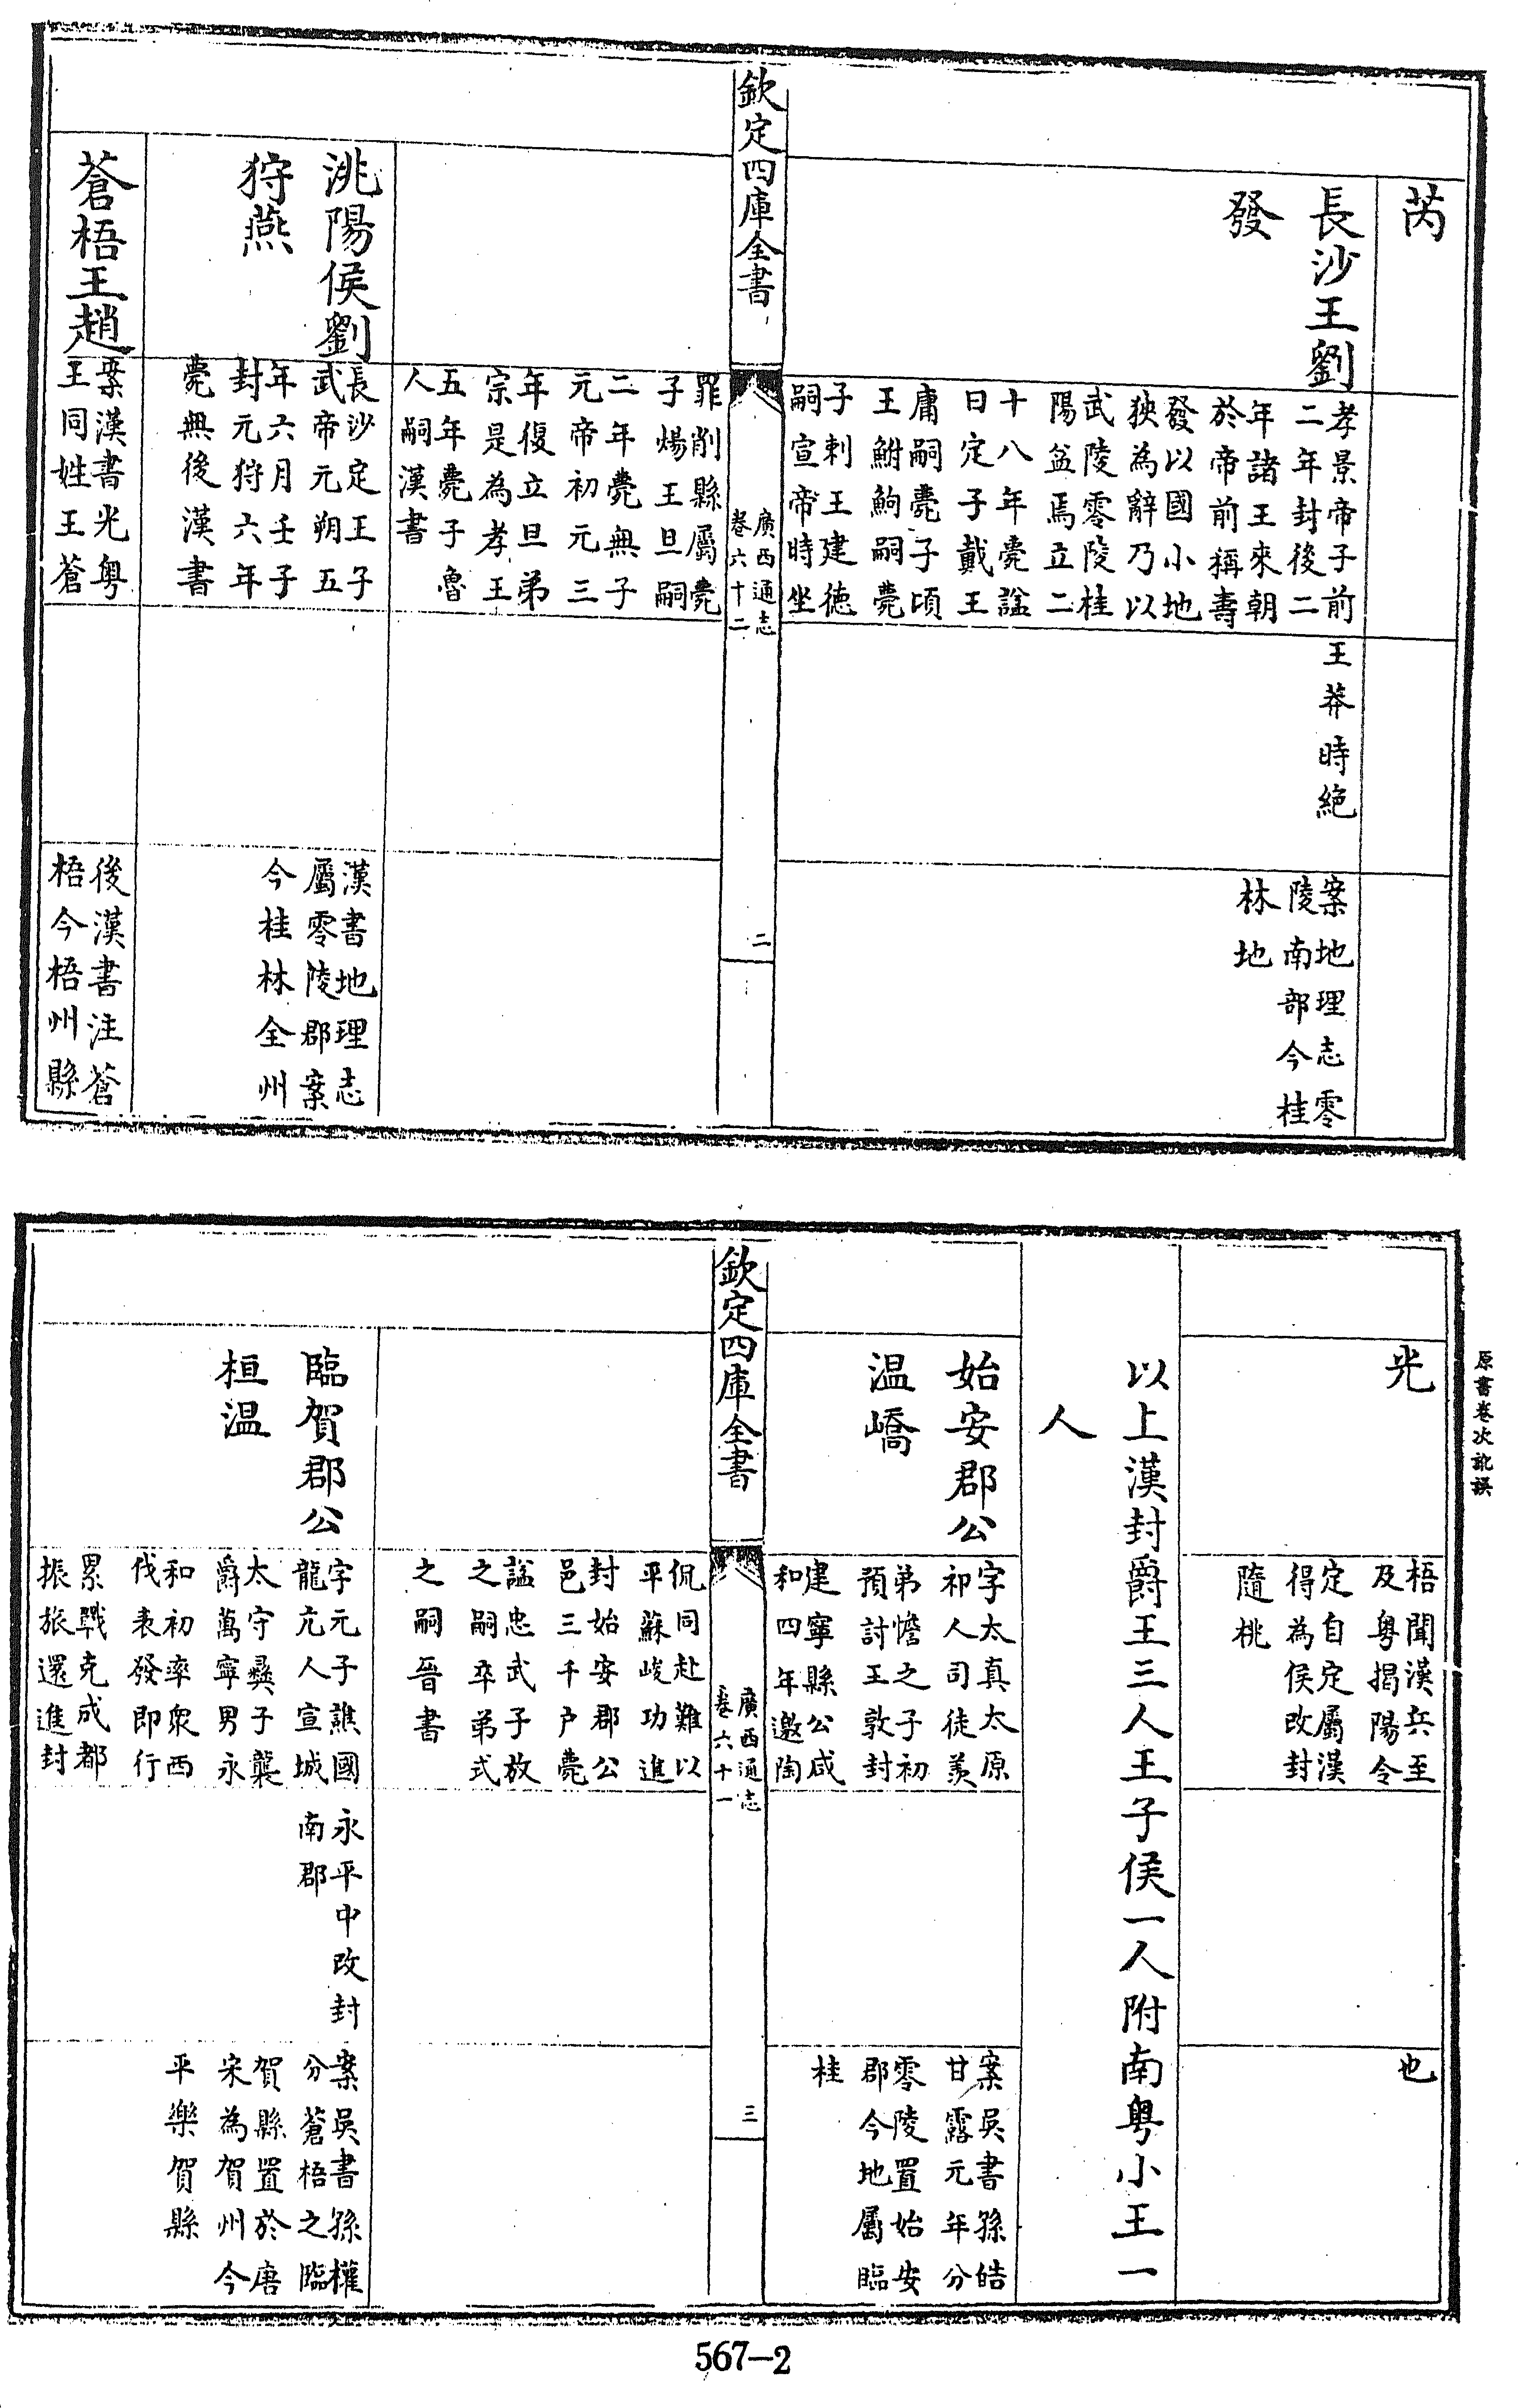 芮
長沙王劉
發
孝景帝子前
二年封後二
年諸王來朝
於帝前稱壽
發以國小地
狹為辭乃以
武陵零陵桂
陽益焉立二
十八年薨諡
日定子戴王
庸嗣薨子頃
王鮒鮈嗣薨
子剌王建德
嗣宣帝時坐
王莽時絕
案地理志零
陵南部今桂
林地
欽定四庫全書
廣西通志
卷六十二
二
罪削縣屬薨
子煬王旦嗣
二年薨無子
元帝初元三
年復立旦弟
宗是為孝王
五年薨子魯
人嗣漢書
洮陽侯劉
狩燕
長沙定王子
武帝元朔五
年六月壬子
封元狩六年
薨無後漢書
漢書地理志
屬零陵郡案
今桂林全州
蒼梧王趙
案漢書光粵
王同姓王蒼
後漢書注蒼
梧今梧州縣
原書卷次訛誤
光
梧聞漢兵至
及粵揭陽令
定自定屬漢
得為侯改封
隨桃
也
以上漢封爵王三人王子侯一人附南粵小王一
人
始安郡公
温嶠
字太真太原
祁人司徒羨
弟憺之子初
預討王敦封
建寧縣公咸
和四年邀陶
案吳書孫皓
甘露元年分
零陵置始安
郡今地屬臨
桂
欽定四庫全書
廣西通志
卷六十一
三
侃同赴難以
平蘇峻功進
封始安郡公
邑三千戶薨
諡忠武子放
之嗣卒弟式
之嗣晉書
臨賀郡公
桓温
字元子譙國
龍亢人宣城
太守彞子襲
爵萬寧男永
和初率眾西
伐表發即行
累戰克成都
振旅還進封
永平中改封
南郡
案吳書孫權
分蒼梧之臨
賀縣置於唐
宋為賀州今
平樂賀縣
567—2